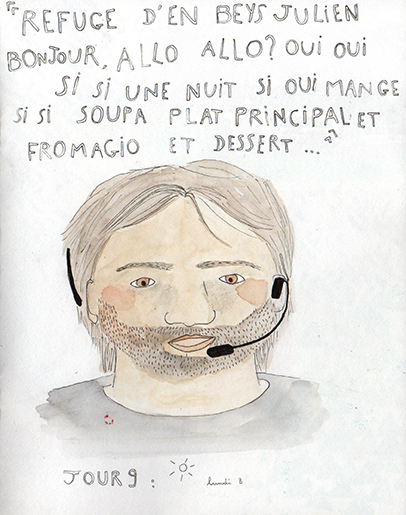 "REFUGE D'EN BEYS JULIEN
BONJOUR, ALLO ALLO? OUI OUI
SI SI UNE NUIT SI OUI MANGE
SI SI SOUPA PLAT PRINCIPAL ET
FROMAGIO ET DESSERT ..."
JOUR 9 : lundi 8